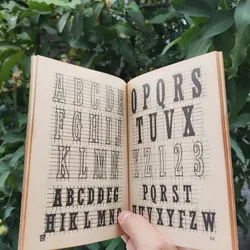 ABCDE
FGHI
KLMN
ABCDEFG
HIKLMN
OPQRS
TUVX
YZ123
PQRST
UVXYZW